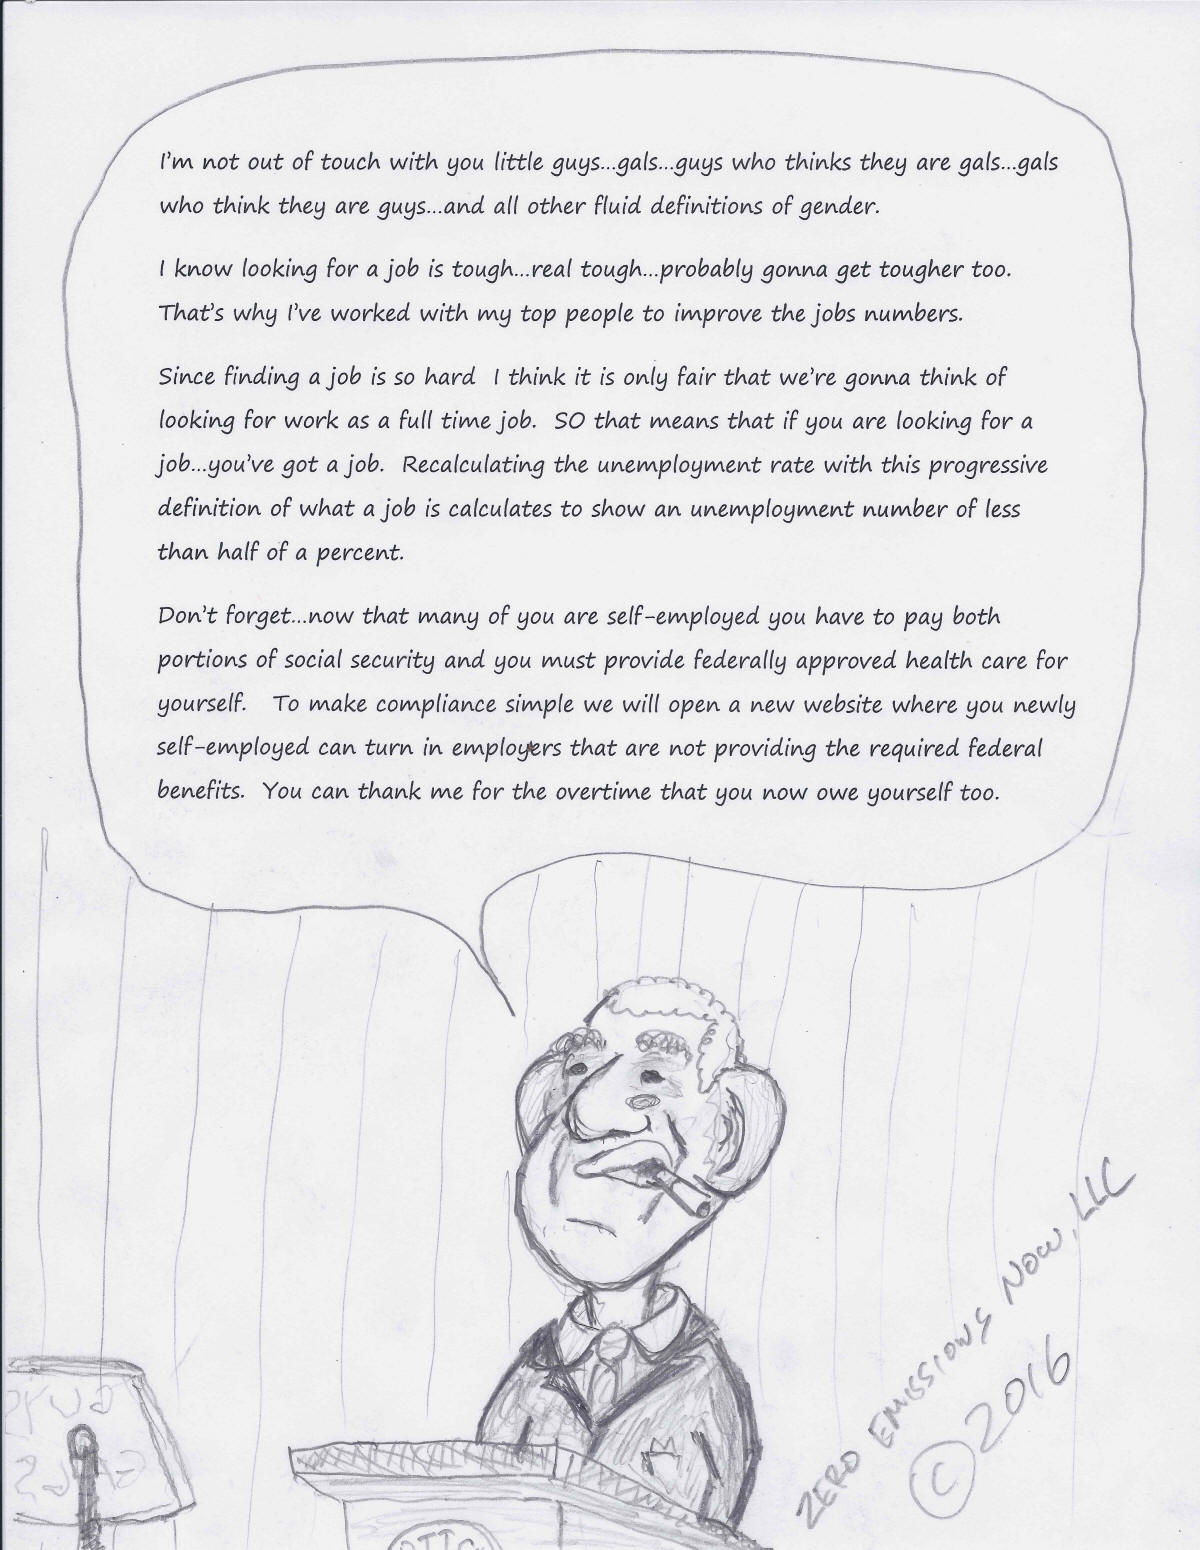 I'm not out of touch with you little guys...gals...guys who thinks they are gals...gals
who think they are guys...and all other fluid definitions of gender.
I know looking for a job is tough...real tough...probably gonna get tougher too.
That's why I've worked with my top people to improve the jobs numbers.
Since finding a job is so hard  I think it is only fair that we're gonna think of
looking for work as a full time job.  SO that means that if you are looking for a
job...you've got a job.  Recalculating the unemployment rate with this progressive
definition of what a job is calculates to show an unemployment number of less
than half of a percent.
Don't forget...now that many of you are self-employed you have to pay both
portions of social security and you must provide federally approved health care for
yourself.   To make compliance simple we will open a new website where you newly
self-employed can turn in employers that are not providing the required federal
benefits.  You can thank me for the overtime that you now owe yourself too.
ZERO EMISSIONS NOW, LLC
© 2016